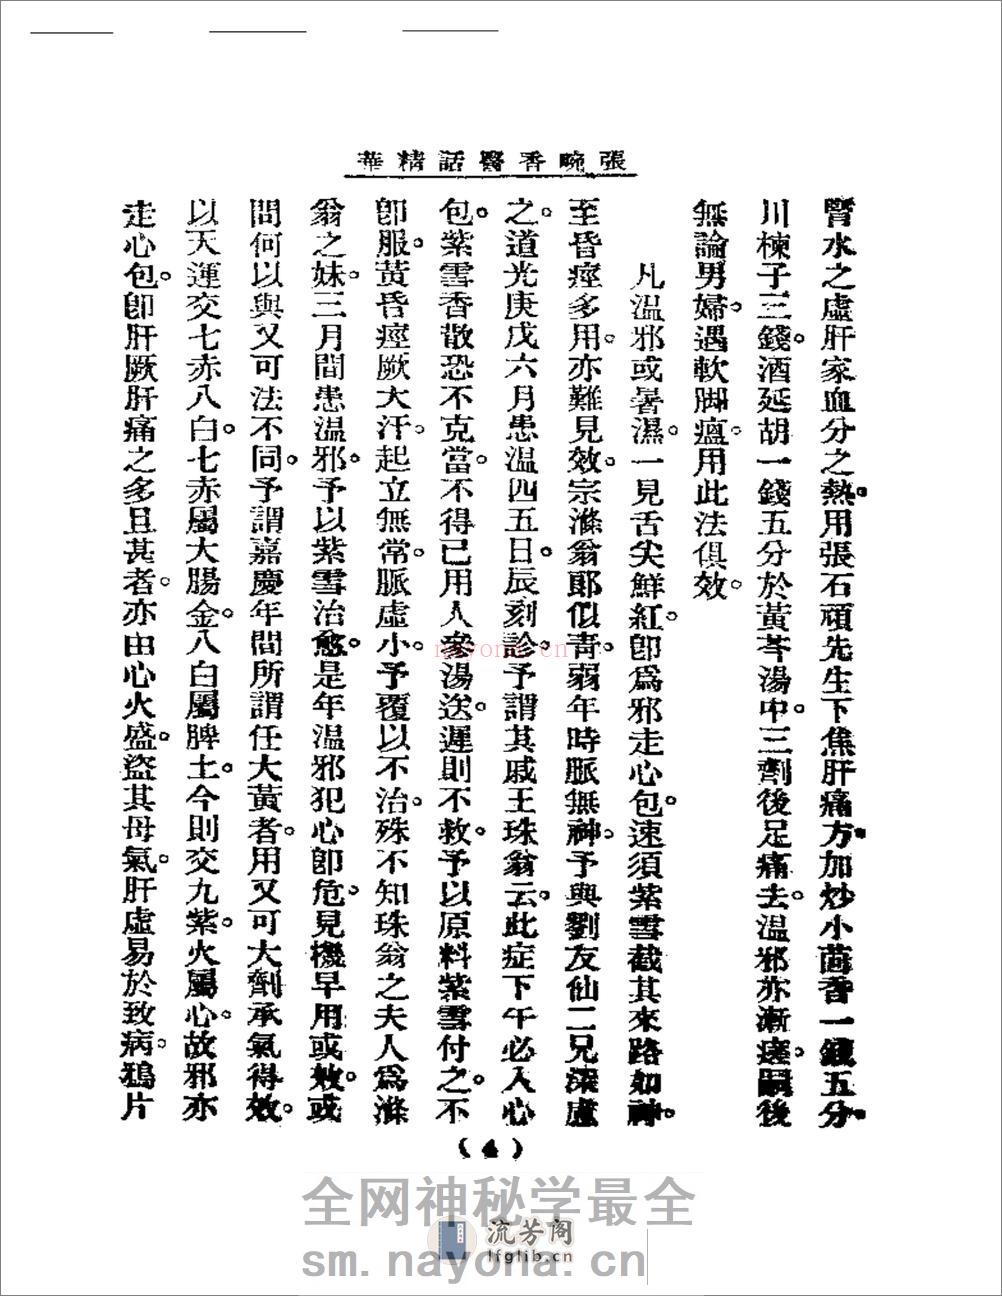 張畹香醫話精華
腎水之虛肝家血分之熱。用張石頑先生下焦肝痛方。加炒小茴香一錢五分
川楝子三錢。酒延胡一錢五分於黃芩湯中。三劑後足痛去。溫邪亦漸瘥。嗣後
無論男婦。遇軟脚瘟。用此法俱效。
凡溫邪或暑濕。一見舌尖鮮紅。卽爲邪走心包。速須紫雪截其來路如神。
至昏痙多用。亦難見效。宗滌翁鄖似青。弱年時脈無神。予與劉友仙二兄深慮
之。道光庚戌六月患溫四五日。辰刻診。予謂其戚王珠翁云。此症下午必入心
包。紫雪香散恐不克當。不得已用人參湯送。遲則不救。予以原料紫雪付之。不
卽服。黃昏痙厥大汗。起立無常。脈虛小。予覆以不治。殊不知珠翁之夫人爲滌
翁之妹。三月間患溫邪。予以紫雪治愈。是年溫邪犯心卽危。見機早用或效。或
問何以與又可法不同。予謂嘉慶年間所謂任大黃者。用又可大劑承氣得效。
以天運交七赤八白。七赤屬大腸金。八白屬脾土。今則交九紫。火屬心。故邪亦
走心包。卽肝厥肝痛之多且甚者。亦由心火盛。盜其母氣。肝虛易於致病。鴉片
(4)
nayona.cn
全网神秘学最全
流芳阁
lfglib.cn
sm.nayona.cn